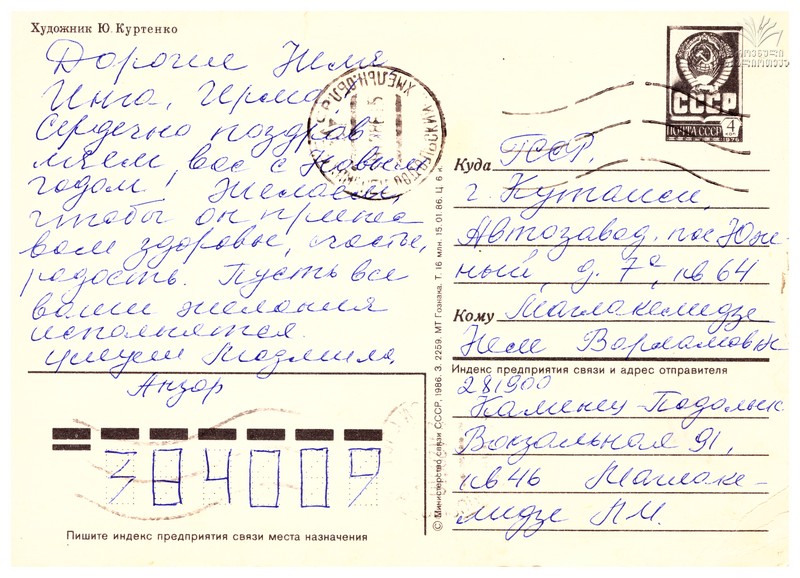 Художник Ю. Куртенко
Дорогие Неля
Инга, Ирма
Сердечно поздрав
ляем вас с Новым
годом! Желаем,
чтобы он принес
вам здоровье, счастье,
радость. Пусть все
ваши желания
исполнятся.
целуем Людмила,
Анзор
384009
Пишите индекс предприятия связи места назначения
© Министерство связи СССР, 1986. З. 2259. МТ Гознака. Т. 16 млн. 15.01.86. Ц. 6 к.
СССР
ПОЧТА СССР 4 коп
1976
Куда ГССР,
г. Кутаиси,
Автозавод. пос Юж-
ный, д. 7², кв 64
Кому Маглакелидзе
Неле Варламовне
Индекс предприятия связи и адрес отправителя
281900
Каменец-Подольск
Вокзальная 91,
кв 46 Маглаке-
лидзе Л.И.